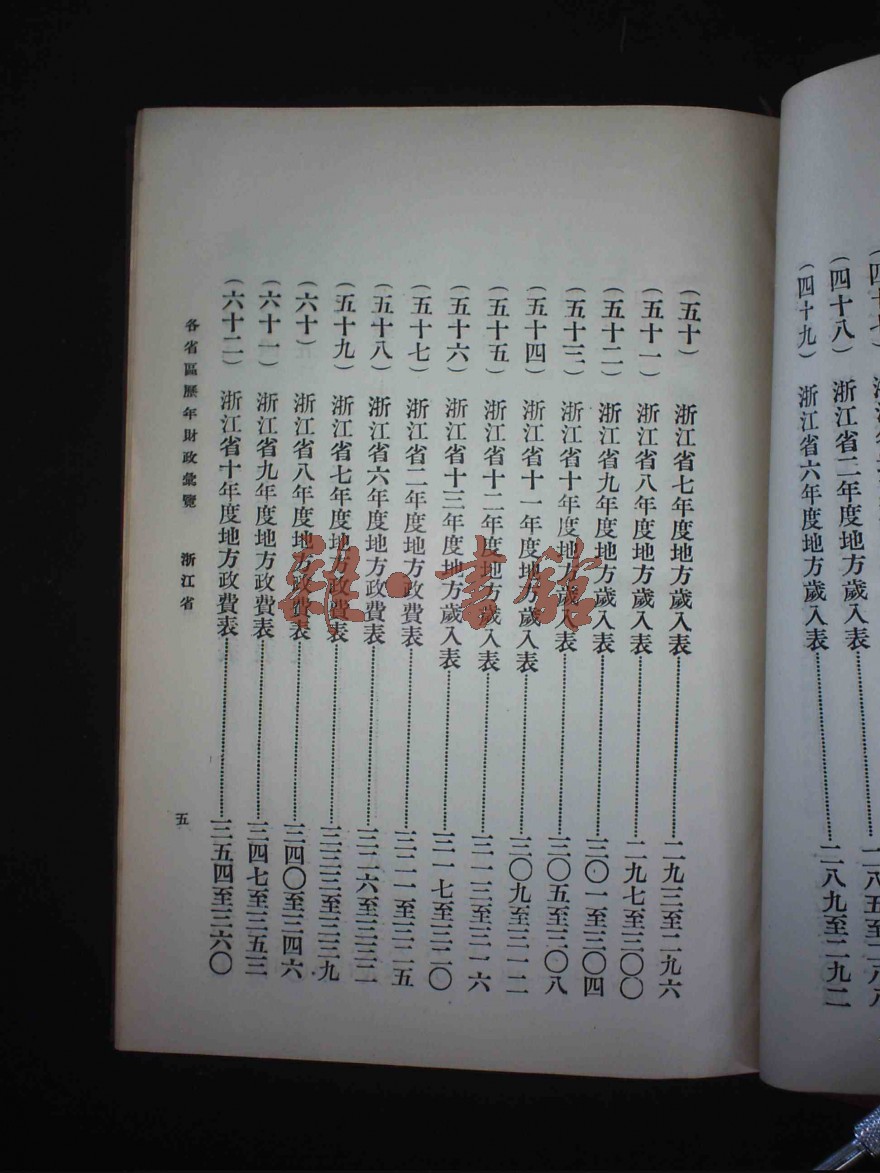 (四十八) 浙江省二年度地方歲入表
(四十九) 浙江省六年度地方歲入表……二八九至二九二
(五十) 浙江省七年度地方歲入表……二九三至二九六
(五十一) 浙江省八年度地方歲入表……二九七至三〇〇
(五十二) 浙江省九年度地方歲入表……三〇一至三〇四
(五十三) 浙江省十年度地方歲入表……三〇五至三〇八
(五十四) 浙江省十一年度地方歲入表……三〇九至三一二
(五十五) 浙江省十二年度地方歲入表……三一三至三一六
(五十六) 浙江省十三年度地方歲入表……三一七至三二〇
(五十七) 浙江省二年度地方政費表……三二一至三二五
(五十八) 浙江省六年度地方政費表……三二六至三三二
(五十九) 浙江省七年度地方政費表……三三三至三三九
(六十) 浙江省八年度地方政費表……三四〇至三四六
(六十一) 浙江省九年度地方政費表……三四七至三五三
(六十二) 浙江省十年度地方政費表……三五四至三六〇
各省區歷年財政彙覽 浙江省 五
雜·書館